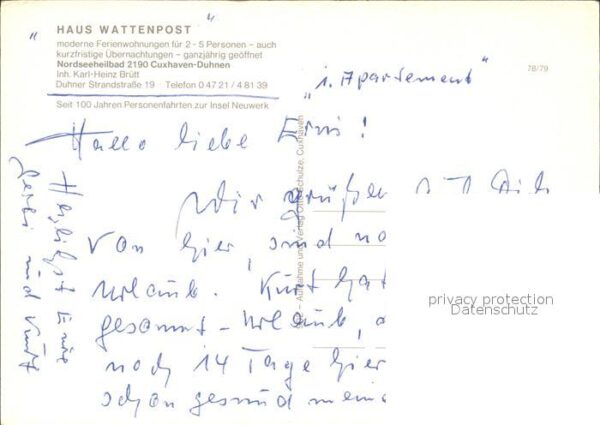 "HAUS WATTENPOST"
moderne Ferienwohnungen für 2 - 5 Personen – auch
kurzfristige Übernachtungen – ganzjährig geöffnet
Nordseeheilbad 2190 Cuxhaven-Duhnen
Inh. Karl-Heinz Brütt
Duhner Strandstraße 19 Telefon 0 47 21 / 4 81 39
Seit 100 Jahren Personenfahrten zur Insel Neuwerk
78/79
"1. Apartement"
Hallo liebe Erni!
Wir grüßen Dich
von hier, sind no
Urlaub. Kurt hat
gesamt-Urlaub,
noch 14 Tage hier
schon gesund
Herzlichst Eure
und Kurt
Aufnahme und Verlag Schulze, Cuxhaven
privacy protection
Datenschutz